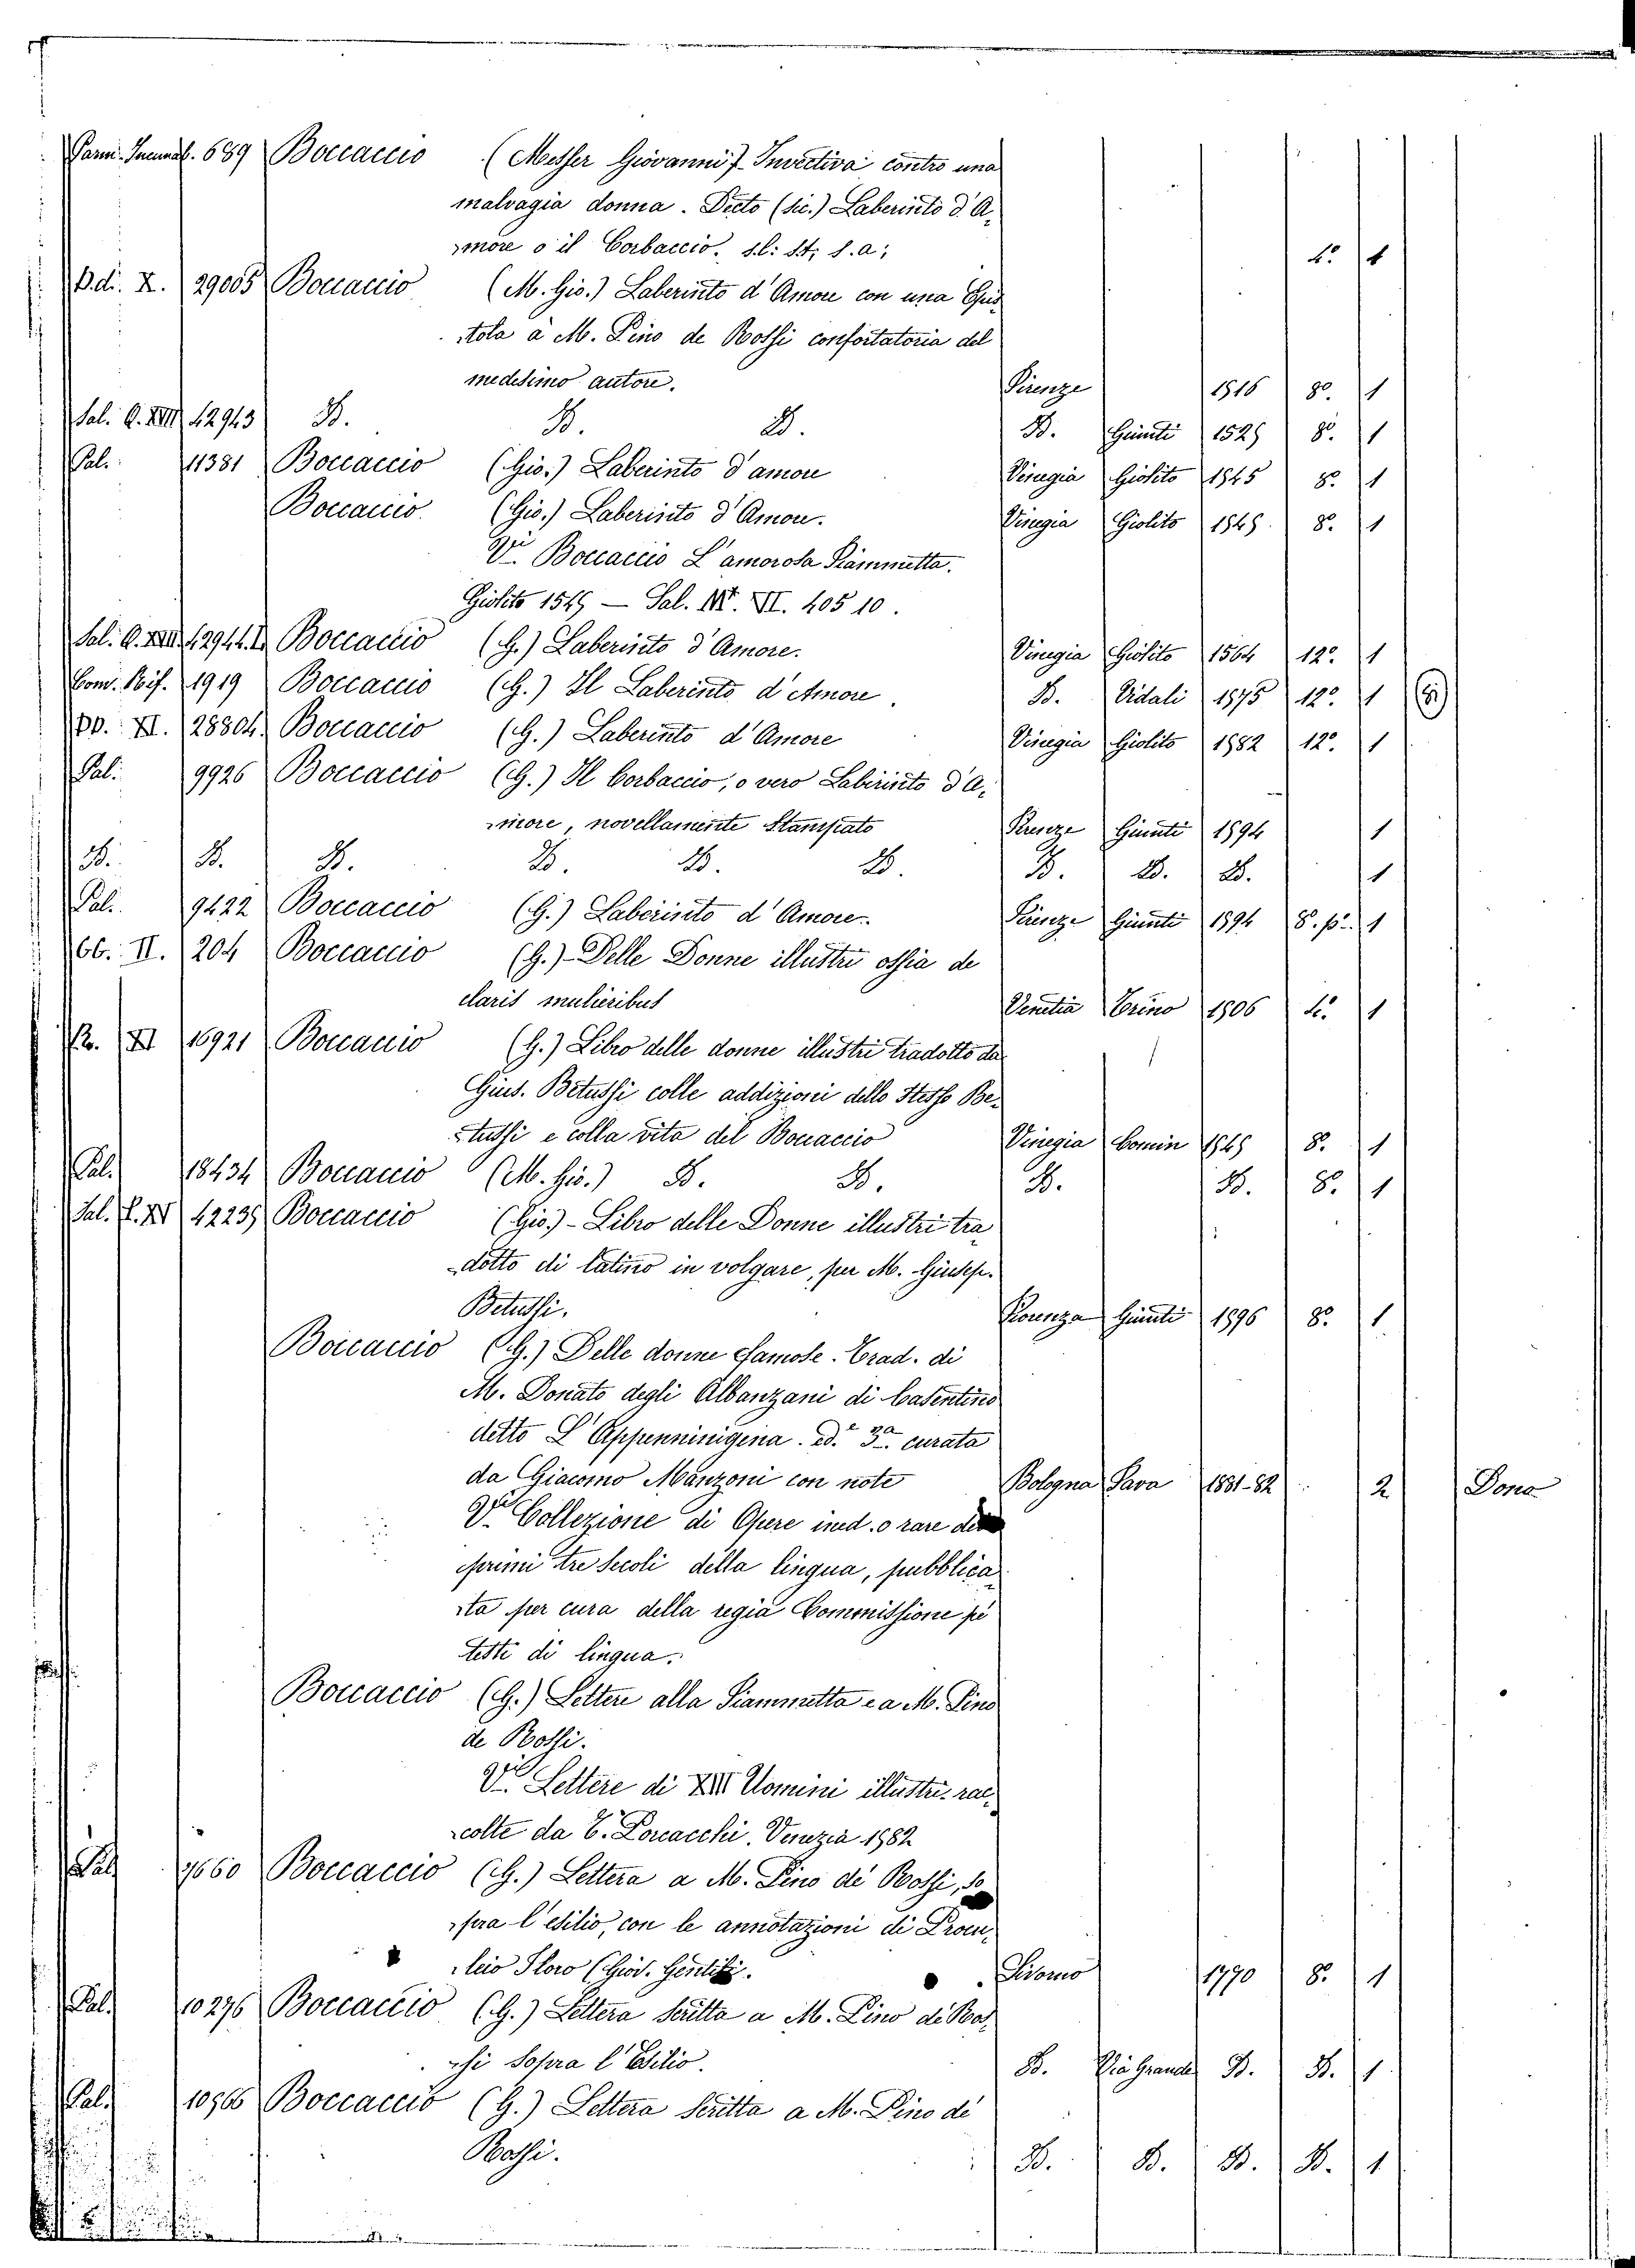 Parm. Incunab. 689 Boccaccio (Messer Giovanni) - Invectiva contro una
malvagia donna. Decto (sic.) Laberinto d'A,
more o il Corbaccio. s.l: st; s.a; 4º 1
D.d. X. 29005 Boccaccio (M. Gio.) Laberinto d'Amore con una Epis
tola a M. Pino de Rossi confortatoria del
medesimo autore. Firenze 1516 8º. 1
Sal. Q. XVII 42943 D. D. D. D. Giunti 1525 8º. 1
Pal. 11381 Boccaccio (Gio.) Laberinto d'amore Vinegia Giolito 1545 8º. 1
Boccaccio. (Gio.) Laberinto d'Amore. Vinegia Giolito 1549 8º. 1
Vi. Boccaccio L'amorosa Fiammetta.
Giolito 1549 — Sal. VII. 405 10.
Sal. Q. XVII. 42944.I. Boccaccio (G.) Laberinto d'Amore. Vinegia Giolito 1564 12º. 1
Com. Rif. 1919 Boccaccio (G.) Il Laberinto d'Amore. D. Vidali 1575 12º. 1
DD. XI. 28804. Boccaccio (G.) Laberinto d'Amore Vinegia Giolito 1582 12º. 1
Pal. 9926 Boccaccio (G.) Il Corbaccio, o vero Labirinto d'A,
more, novellamente stampato Firenze Giunti 1594 1
D. D. D. D. D. D. D. D. D. 1
Pal. 9422 Boccaccio (G.) Laberinto d'Amore. Firenze Giunti 1594 8º. pº. 1
bb. II. 204 Boccaccio (G.) - Delle Donne illustri ossia de
claris mulieribus Venetia Trino 1506 4º. 1
XI 16921 Boccaccio (G.) Libro delle donne illustri tradotto da
Gius. Betussi colle addizioni dello stesso Be,
tussi e colla vita del Boccaccio Vinegia Comin 1545 8º. 1
Pal. 18434 Boccaccio (M. Gio.) D. D. D. D. 8º. 1
Sal. P. XV 42239 Boccaccio (Gio.) - Libro delle Donne illustri tra
dotto di latino in volgare, per M. Giusep.
Betussi. Fiorenza Giunti 1596 8º. 1
Boccaccio (G.) Delle donne famose. Trad. di
M. Donato degli Albanzani di Casentino
detto L'Appenninigena. ed.e 3.za curata
da Giacomo Manzoni con note Bologna Fava 1881-82 2 Dono
Vdi Collezione di Opere ined. o rare dei
primi tre secoli della lingua, pubblica
ta per cura della regia Commissione pe'
testi di lingua.
Boccaccio (G.) Lettere alla Fiammetta e a M. Pino
de Rossi.
Vdi Lettere di XIII Uomini illustri rac,
colte da T. Porcacchi. Venezia 1582
Pal. 7660 Boccaccio (G.) Lettera a M. Pino de' Rossi, so
pra l'esilio, con le annotazioni di Procu,
leio Floro (Giov. Gentili. Livorno 1770 8º. 1
Pal. 10276 Boccaccio (G.) Lettera scritta a M. Pino de Ros,
si sopra l'Esilio. D. Via Grande D. D. 1
Pal. 10566 Boccaccio (G.) Lettera scritta a M. Pino de'
Rossi. D. D. D. D. 1